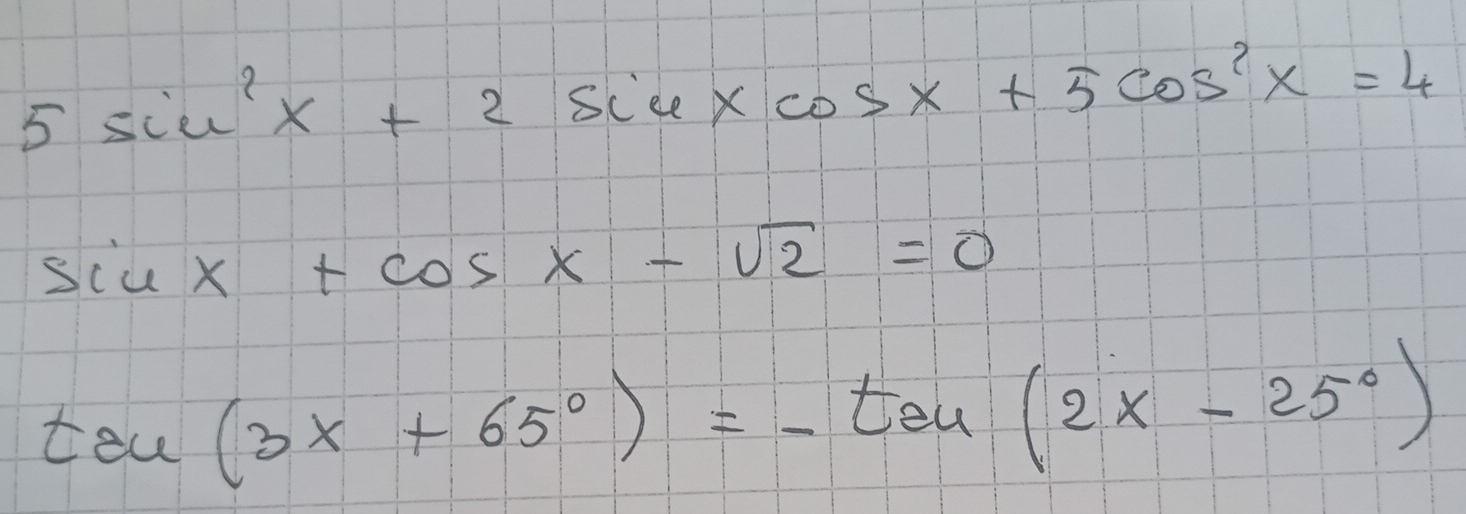 5 sin²x + 2 sin x cos x + 5 cos²x = 4
sin x + cos x - √2 = 0
tan (3x + 65°) = - tan (2x - 25°)